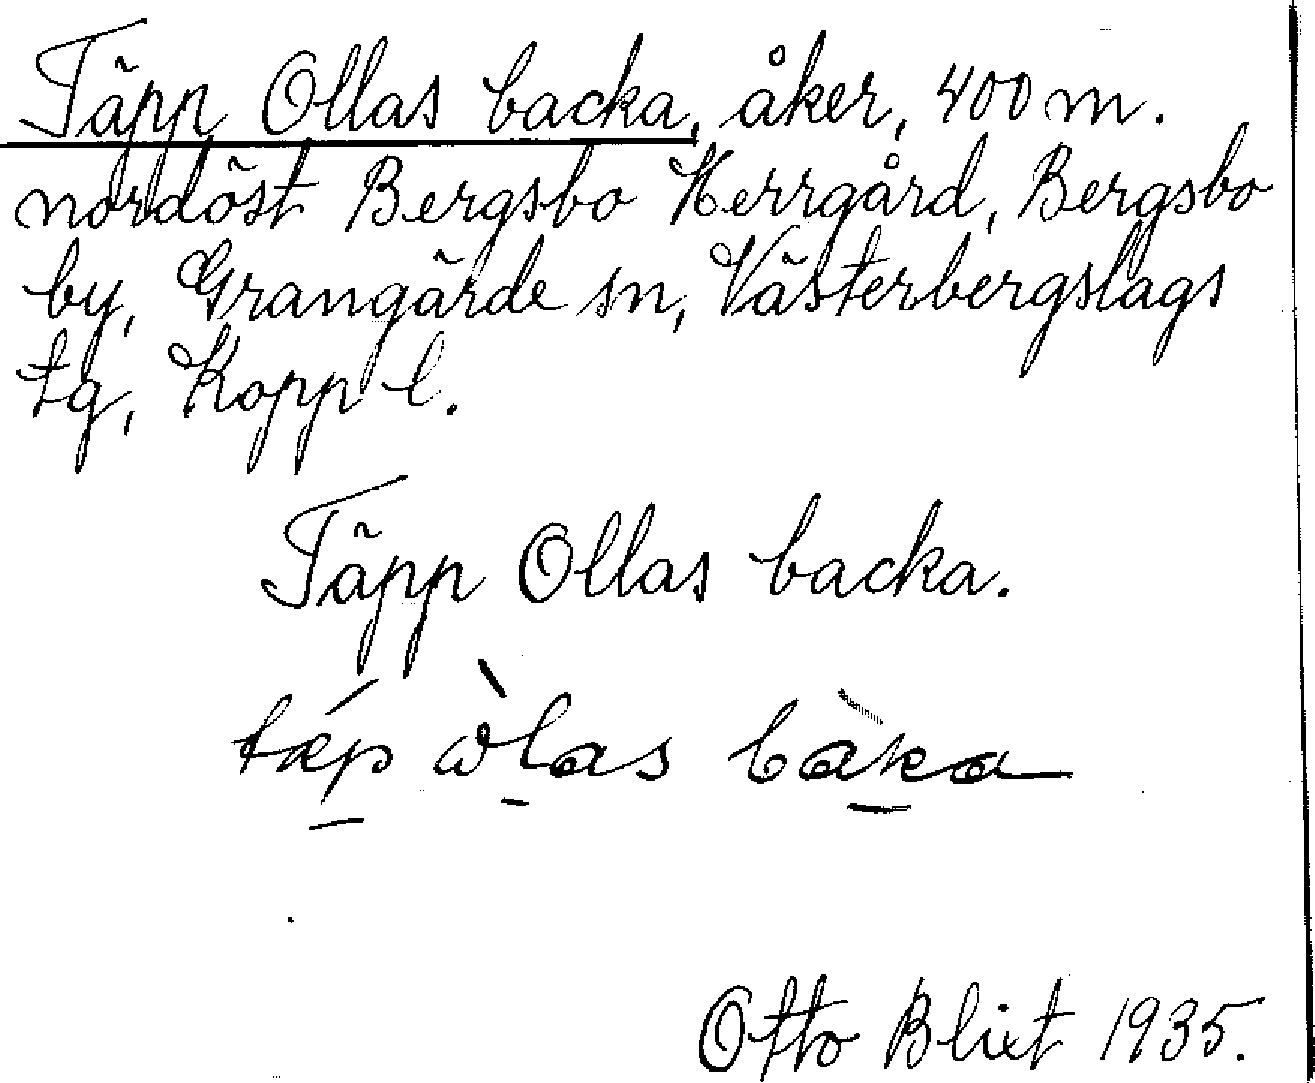 Täpp Ollas backa, åker, 400 m.
nordöst Bergsbo Herrgård, Bergsbo
by, Grangärde sn, Västerbergslags
tg, Kopp l.
Täpp Ollas backa.
tǽp ὼlas bàka
Otto Blixt 1935.